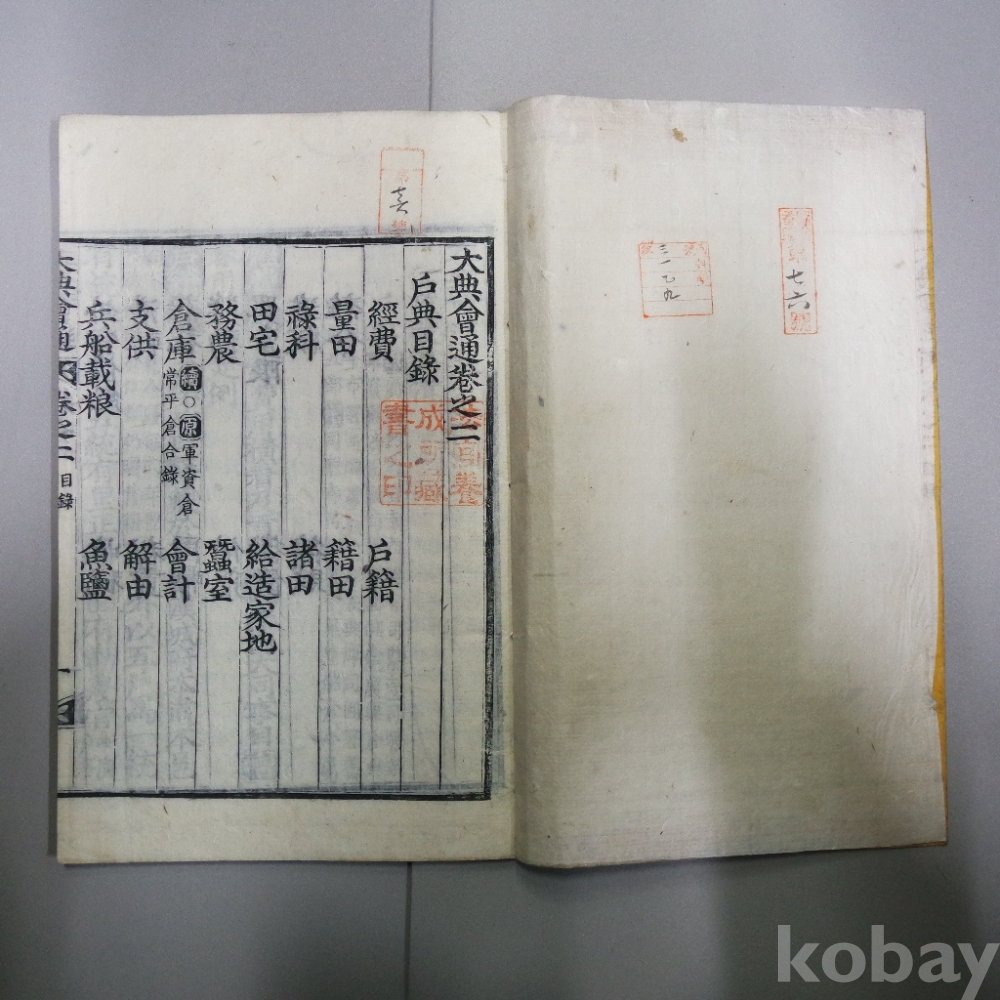 七六
三一七九
大典會通卷之二
戶典目錄
經費 戶籍
量田 籍田
祿科 諸田
田宅 給造家地
務農 蠶室
倉庫 續○原軍資倉常平倉合錄 會計
支供 解由
兵船載粮 魚鹽
大典會通 卷之二 目錄 一
成
書之印
kobay